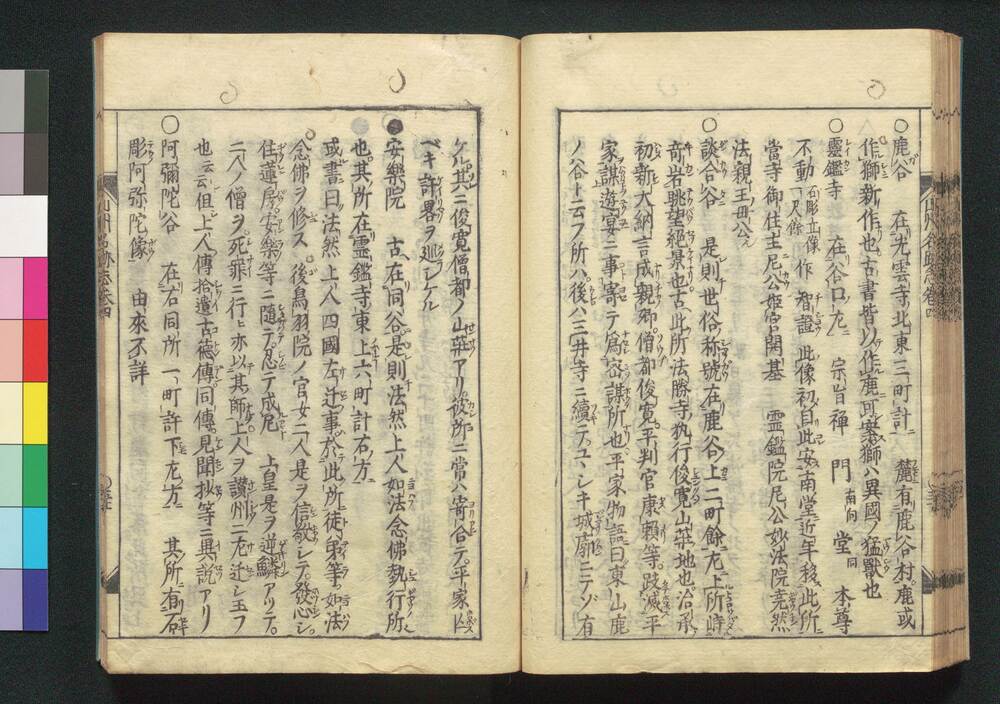 〇鹿谷 在光雲寺北東三町計 麓有鹿谷村鹿或
作獅新作也古書皆以作鹿可案獅ハ異國ノ猛獣也
〇靈鑑寺 在谷口左 宗旨禅 門南向 堂同 本尊
不動石彫立像一尺餘 作智證 此像初自此安南堂近年移此所
當寺御住主尼公姫宮開基 霊鑑院尼公妙法院尭然
法親王母公
〇談合谷 是則世俗称號在鹿谷上二町餘左上所峙
竒岩眺望絶景也古此所法勝寺執行俊寛山荘地也治承
初新大納言成親卿僧都俊寛平判官康頼等跂滅平
家謀遊宴ニ事寄テ為密謀所也平家物語曰東山鹿
ノ谷ト云フ所ハ後ハ三井寺ニ續テユヽシキ城廓ニテゾ有
ケル其ニ俊寛僧都ノ山莊アリ彼所ニ常ハ寄合テ平家亡ス
ベキ謀畧ヲ廻シケル
●安樂院 古在同谷是則法然上人如法念佛勤行所
也其所在霊鑑寺東上六町計右方
或書曰法然上人四國左迁事於此所徒弟等如法
念佛ヲ修ス 後鳥羽院ノ官女二人是ヲ信敬シテ發心シ
住蓮房安樂等ニ随テ忍テ成尼 上皇是ヲ逆鱗アリテ
二人ノ僧ヲ死罪ニ行ヒ亦以其師上人ヲ讃州ニ左迁シ玉フ
也云云但上人傳拾遺古徳傳同傳見聞抄等ニ異説アリ
〇阿彌陀谷 在右同所一町許下左方 其所有石
彫阿弥陀像 由來不詳